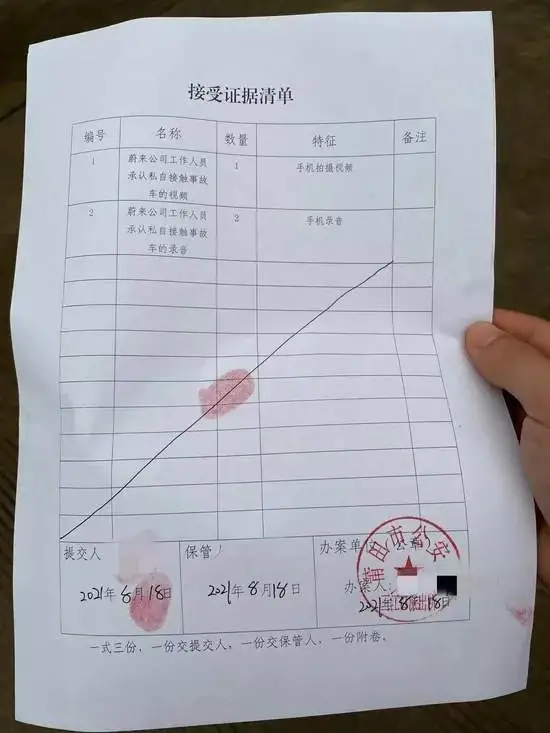 接受证据清单
编号 名称 数量 特征 备注
1 蔚来公司工作人员 1 手机拍摄视频
承认私自接触事故
车的视频
2 蔚来公司工作人员 2 手机录音
承认私自接触事故
车的录音
提交人 保管人 办案单位（公章）
莆田市公安
办案人：
2021年8月18日 2021年8月18日 2021年8月18日
一式三份，一份交提交人，一份交保管人，一份附卷。